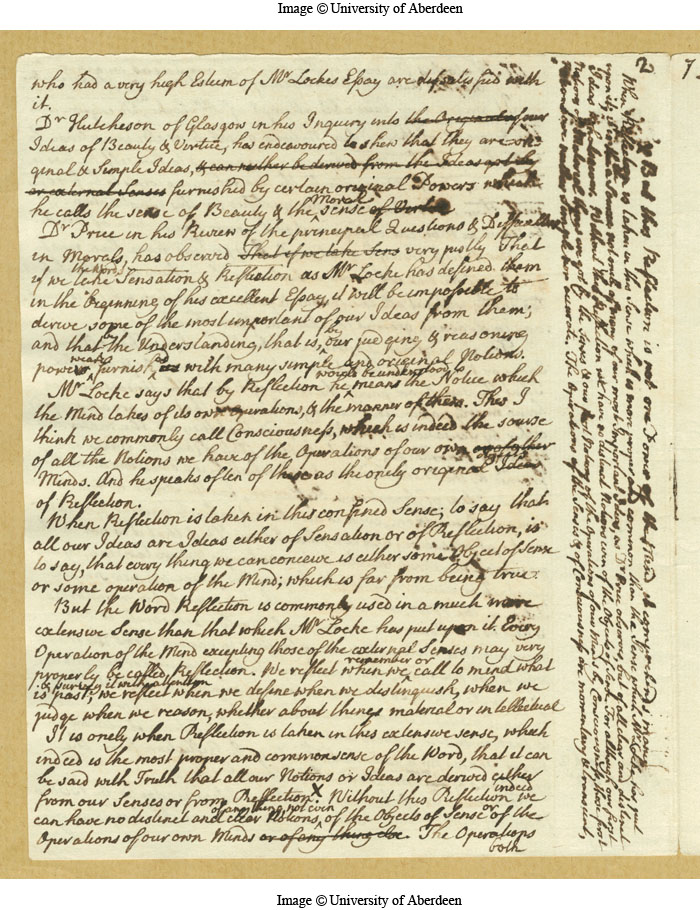 Image © University of Aberdeen
2
7
who had a very high Esteem of Mr Lockes Essay are dissatisfied with
it.
Dr Hutcheson of Glasgow in his Inquiry into the Origin of our
Ideas of Beauty & Vertue, has endeavoured to shew that they are ori
ginal & Simple Ideas, & can neither be derived from the Ideas got by
or external Senses furnished by certain original Powers which
he calls the sense of Beauty & the Moral sense of Vertue
Dr Price in his Review of the principal Questions & Difficulties
in Morals, has observed That if we take Sens very justly That
if we take the Words Sensation & Reflection as Mr Locke has defined them
in the beginning of his excellent Essay, it will be impossible to
derive some of the most important of our Ideas from them;
and that the Understanding, that is, our judging & reasoning
power, furnish with many simple and original Notions.
Mr Locke says that by Reflection he would be understood to means the Notice which
the Mind takes of its own Operations, & the manner of them. This I
think we commonly call Consciousness, which is indeed the sourse
of all the Notions we have of the Operations of our own
Minds. And he speaks often of these as the onely original Ideas
of Reflection.
When Reflection is taken in this confined Sense; to say that
all our Ideas are Ideas either of Sensation or of Reflection, is
to say, that every thing we can conceive is either some Object of Sense
or some operation of the Mind; which is far from being true.
But the Word Reflection is commonly used in a much more
extensive Sense than that which Mr Locke has put upon it. Every
Operation of the Mind excepting those of the external Senses may very
properly be called Reflection. We reflect when we remember or call to mind what
is past; we reflect when we define when we distinguish, when we
judge when we reason, whether about things material or intellectual
It is onely when Reflection is taken in this extensive sense, which
indeed is the most proper and common sense of the Word, that it can
be said with Truth that all our Notions or Ideas are derived either
from our Senses or from Reflection. X Without this Reflection indeed we
can have no distinct and clear Notions of any thing not even of the Objects of Sense or of the
Operations of our own Minds or of any thing else. The Operations
both
X But this Reflection is not one Power of the Mind it comprehends many
Image © University of Aberdeen